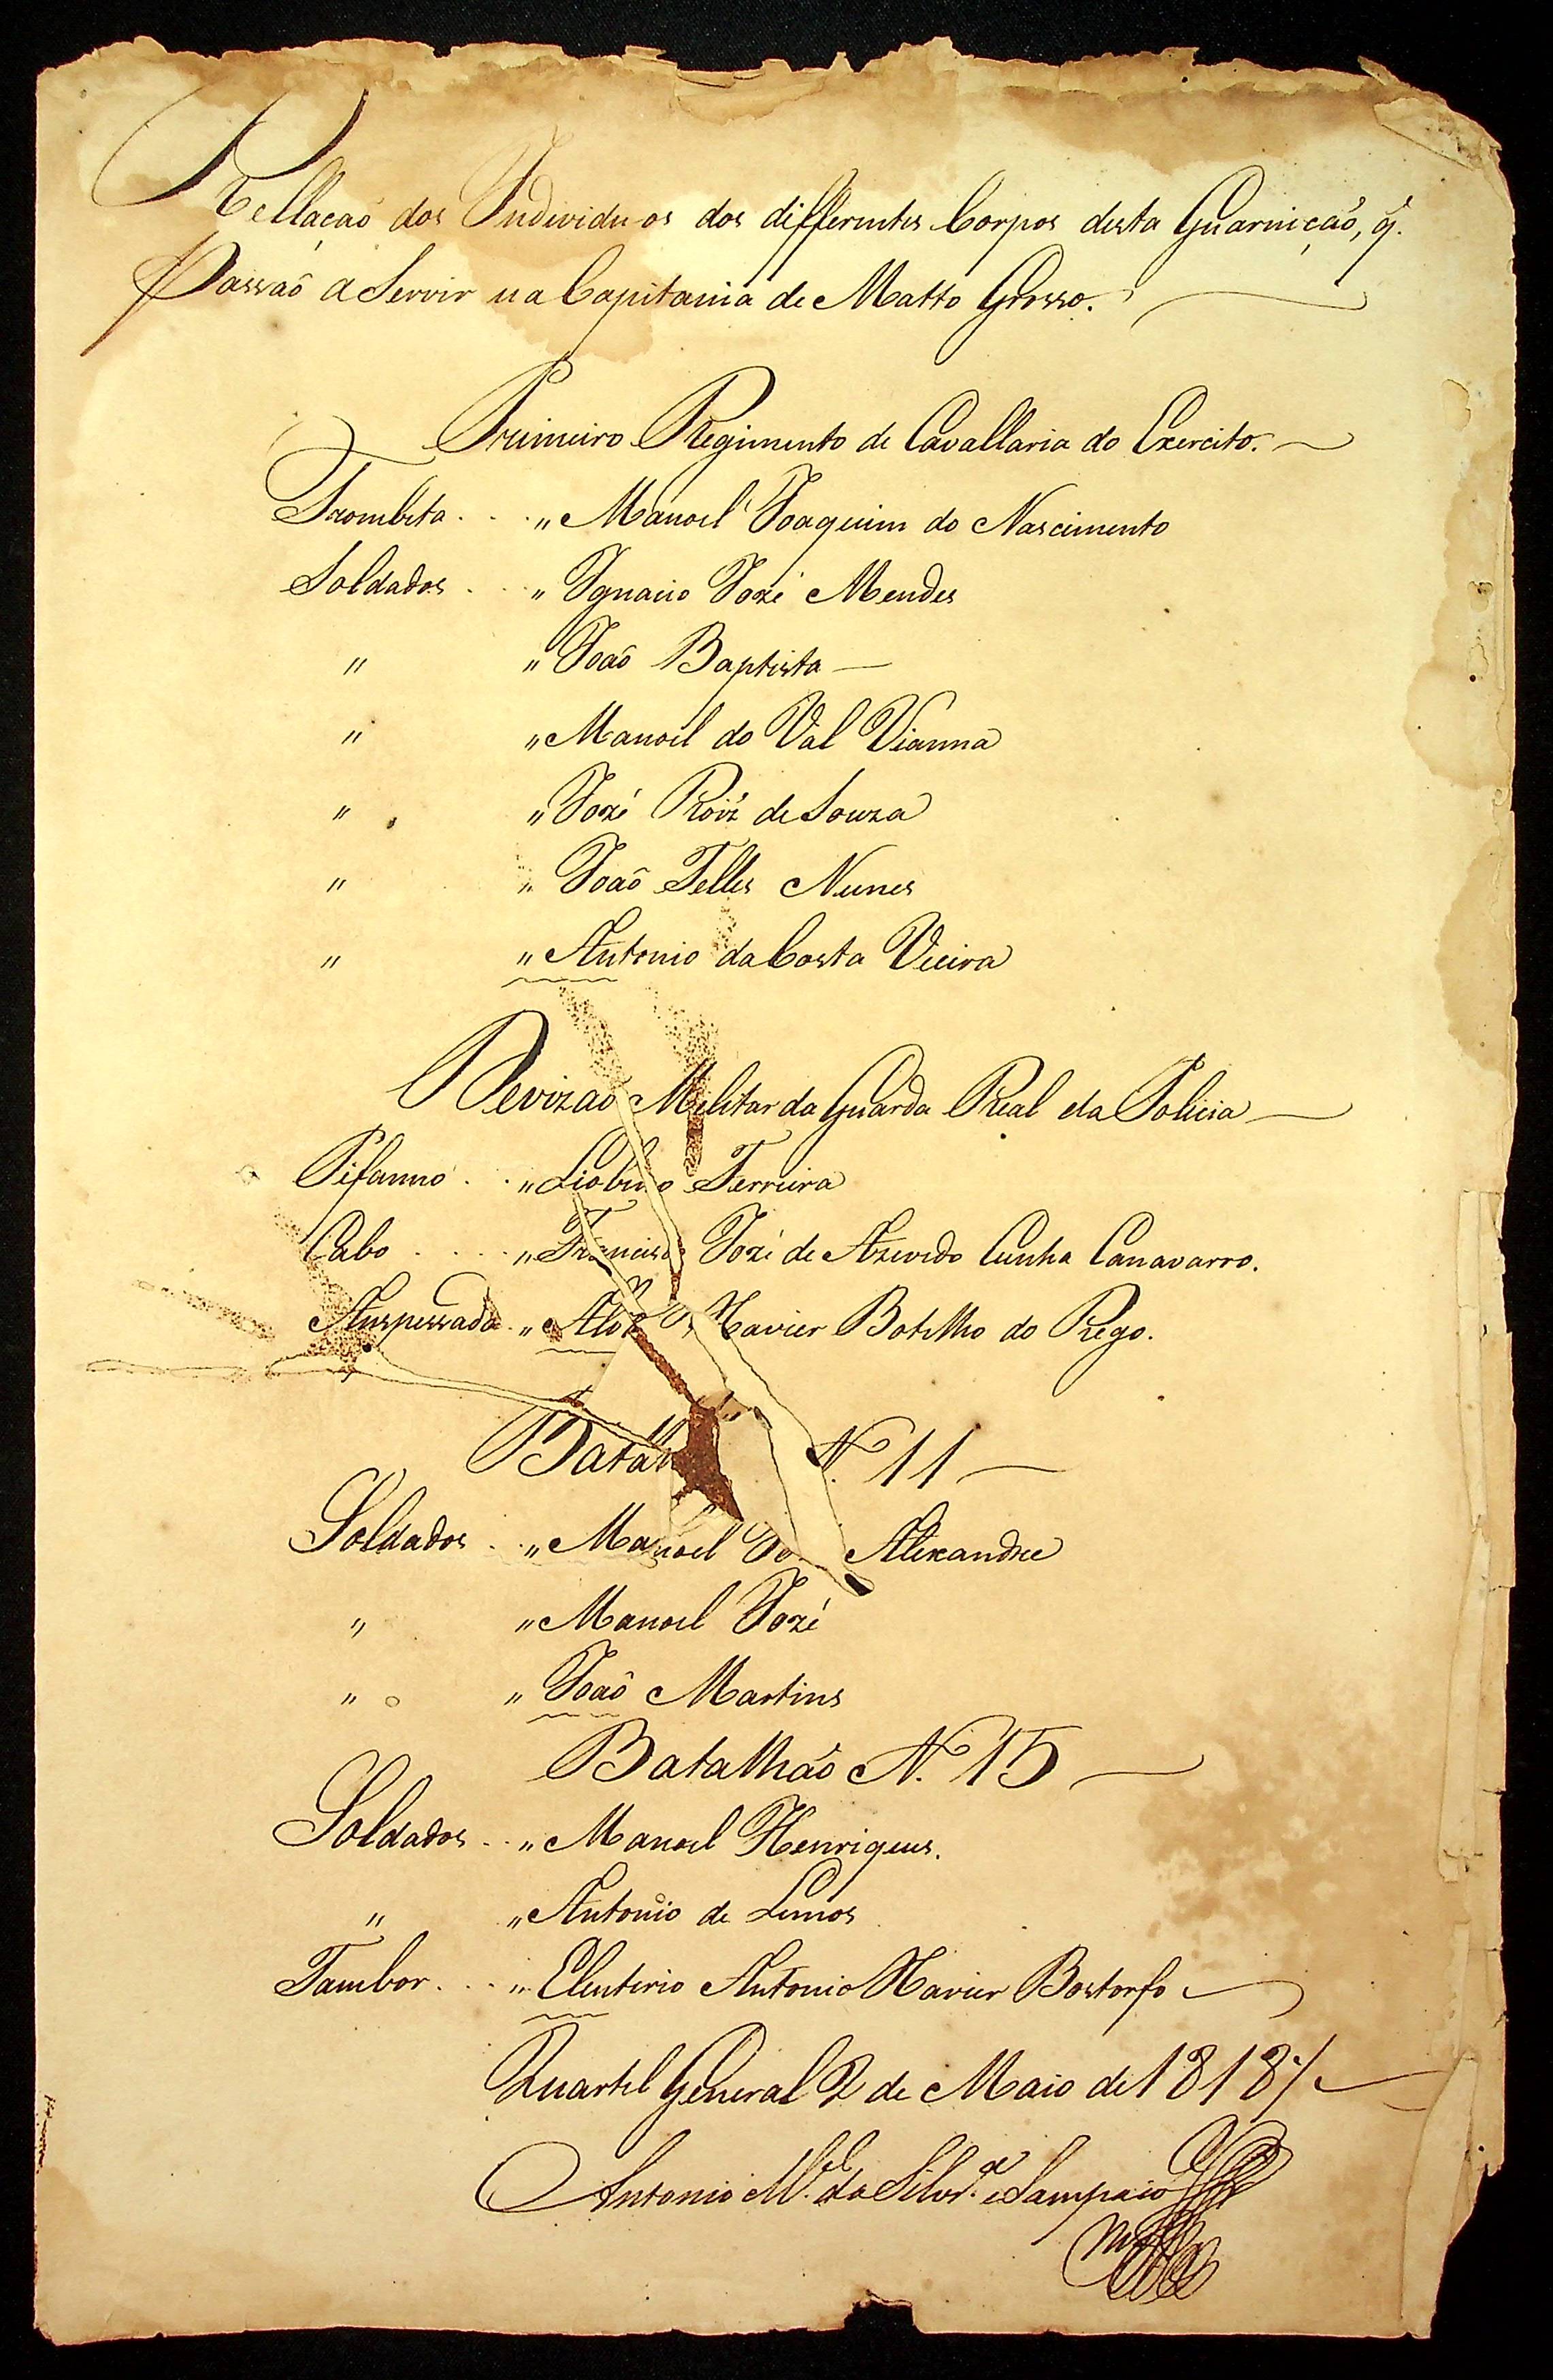 Rellaçaõ dos Individuos dos differentes Corpos desta Guarniçaõ, q̃.
Passaõ a Servir na Capitania de Matto Grosso.
Primeiro Regimento de Cavallaria do Exercito.
Trombeta . . . „ Manoel Joaquim do Nascimento
Soldados . . „ Ignacio Jozé Mendes
„ „ Joaõ Baptista
„ „ Manoel do Val Vianna
„ „ Jozé Roiz de Souza
„ „ Joaõ Telles Nunes
„ „ Antonio da Costa Vieira
Devizaõ Militar da Guarda Real da Policia
Pifanno . . „ Ferreira
Cabo . . . . „ Francisco Jozé de Azevedo Cunha Canavarro.
Anspessada . „ Xavier Botelho do Rego.
N. 11
Soldados . . „ Manoel Alexandre
„ „ Manoel Jozé
„ „ Joaõ Martins
Batalhaõ N. 15
Soldados . . „ Manoel Henriques.
„ „ Antonio de Lemos
Tambor . . . „ Eleuterio Antonio Xavier Bostorfo
Quartel General 2 de Maio de 1818
Antonio M.el da Silv.a e Sampaio